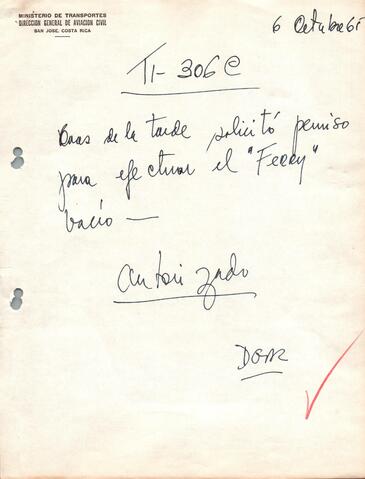 MINISTERIO DE TRANSPORTES
DIRECCIÓN GENERAL DE AVIACIÓN CIVIL
SAN JOSE, COSTA RICA
6 Octubre 65
TI-306C
de la tarde solicitó permiso
para efectuar el "Ferry"
vacío —
autorizado